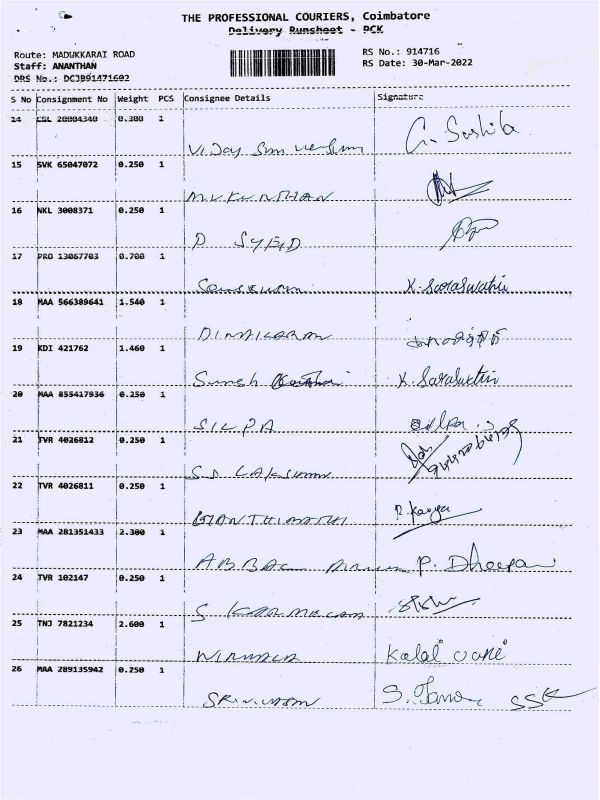 THE PROFESSIONAL COURIERS, Coimbatore
Delivery Runsheet - PCK
Route: MADUKKARAI ROAD
Staff: ANANTHAN
DRS No.: DCJB91471602
RS No.: 914716
RS Date: 30-Mar-2022
S No Consignment No Weight PCS Consignee Details Signature
14 CSL 20004340 0.300 1
VIJAY G. Sashila
15 SVK 65047072 0.250 1
MUKUNTHAN
16 NKL 3008371 0.250 1
P SYED
17 PRO 13067703 0.700 1
K. Saraswathi
18 MAA 566389641 1.540 1
DINAKARAN
19 KDI 421762 1.460 1
Suresh K. Saraswathi
20 MAA 855417936 0.250 1
SILPA
21 TVR 4026812 0.250 1
S.S LAKSHMI
22 TVR 4026811 0.250 1
GIANTHIMATHI R. Kavya
23 MAA 281351433 2.300 1
ABBAS P. Dheepan
24 TVR 102147 0.250 1
S
25 TNJ 7821234 2.600 1
NIRMALA Kalai vani
26 MAA 289135942 0.250 1
SRINIVASAN S. SSK